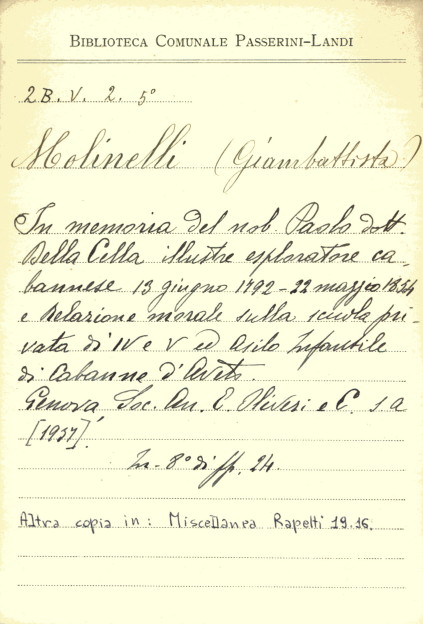 BIBLIOTECA COMUNALE PASSERINI-LANDI
2B. V. 2. 5°
Molinelli (Giambattista)
In memoria del nob. Paolo dott.
Della Cella illustre esploratore ca-
bannese 13 giugno 1792 - 22 maggio 1854
e Relazione morale sulla scuola pri-
vata di IV e V ed Asilo Infantile
di Cabanne d'Aveto.
Genova Soc. An. E. Oliveri e C. s a
[1937].
In-8° di pp. 24.
Altra copia in: Miscellanea Rapetti 19.16.